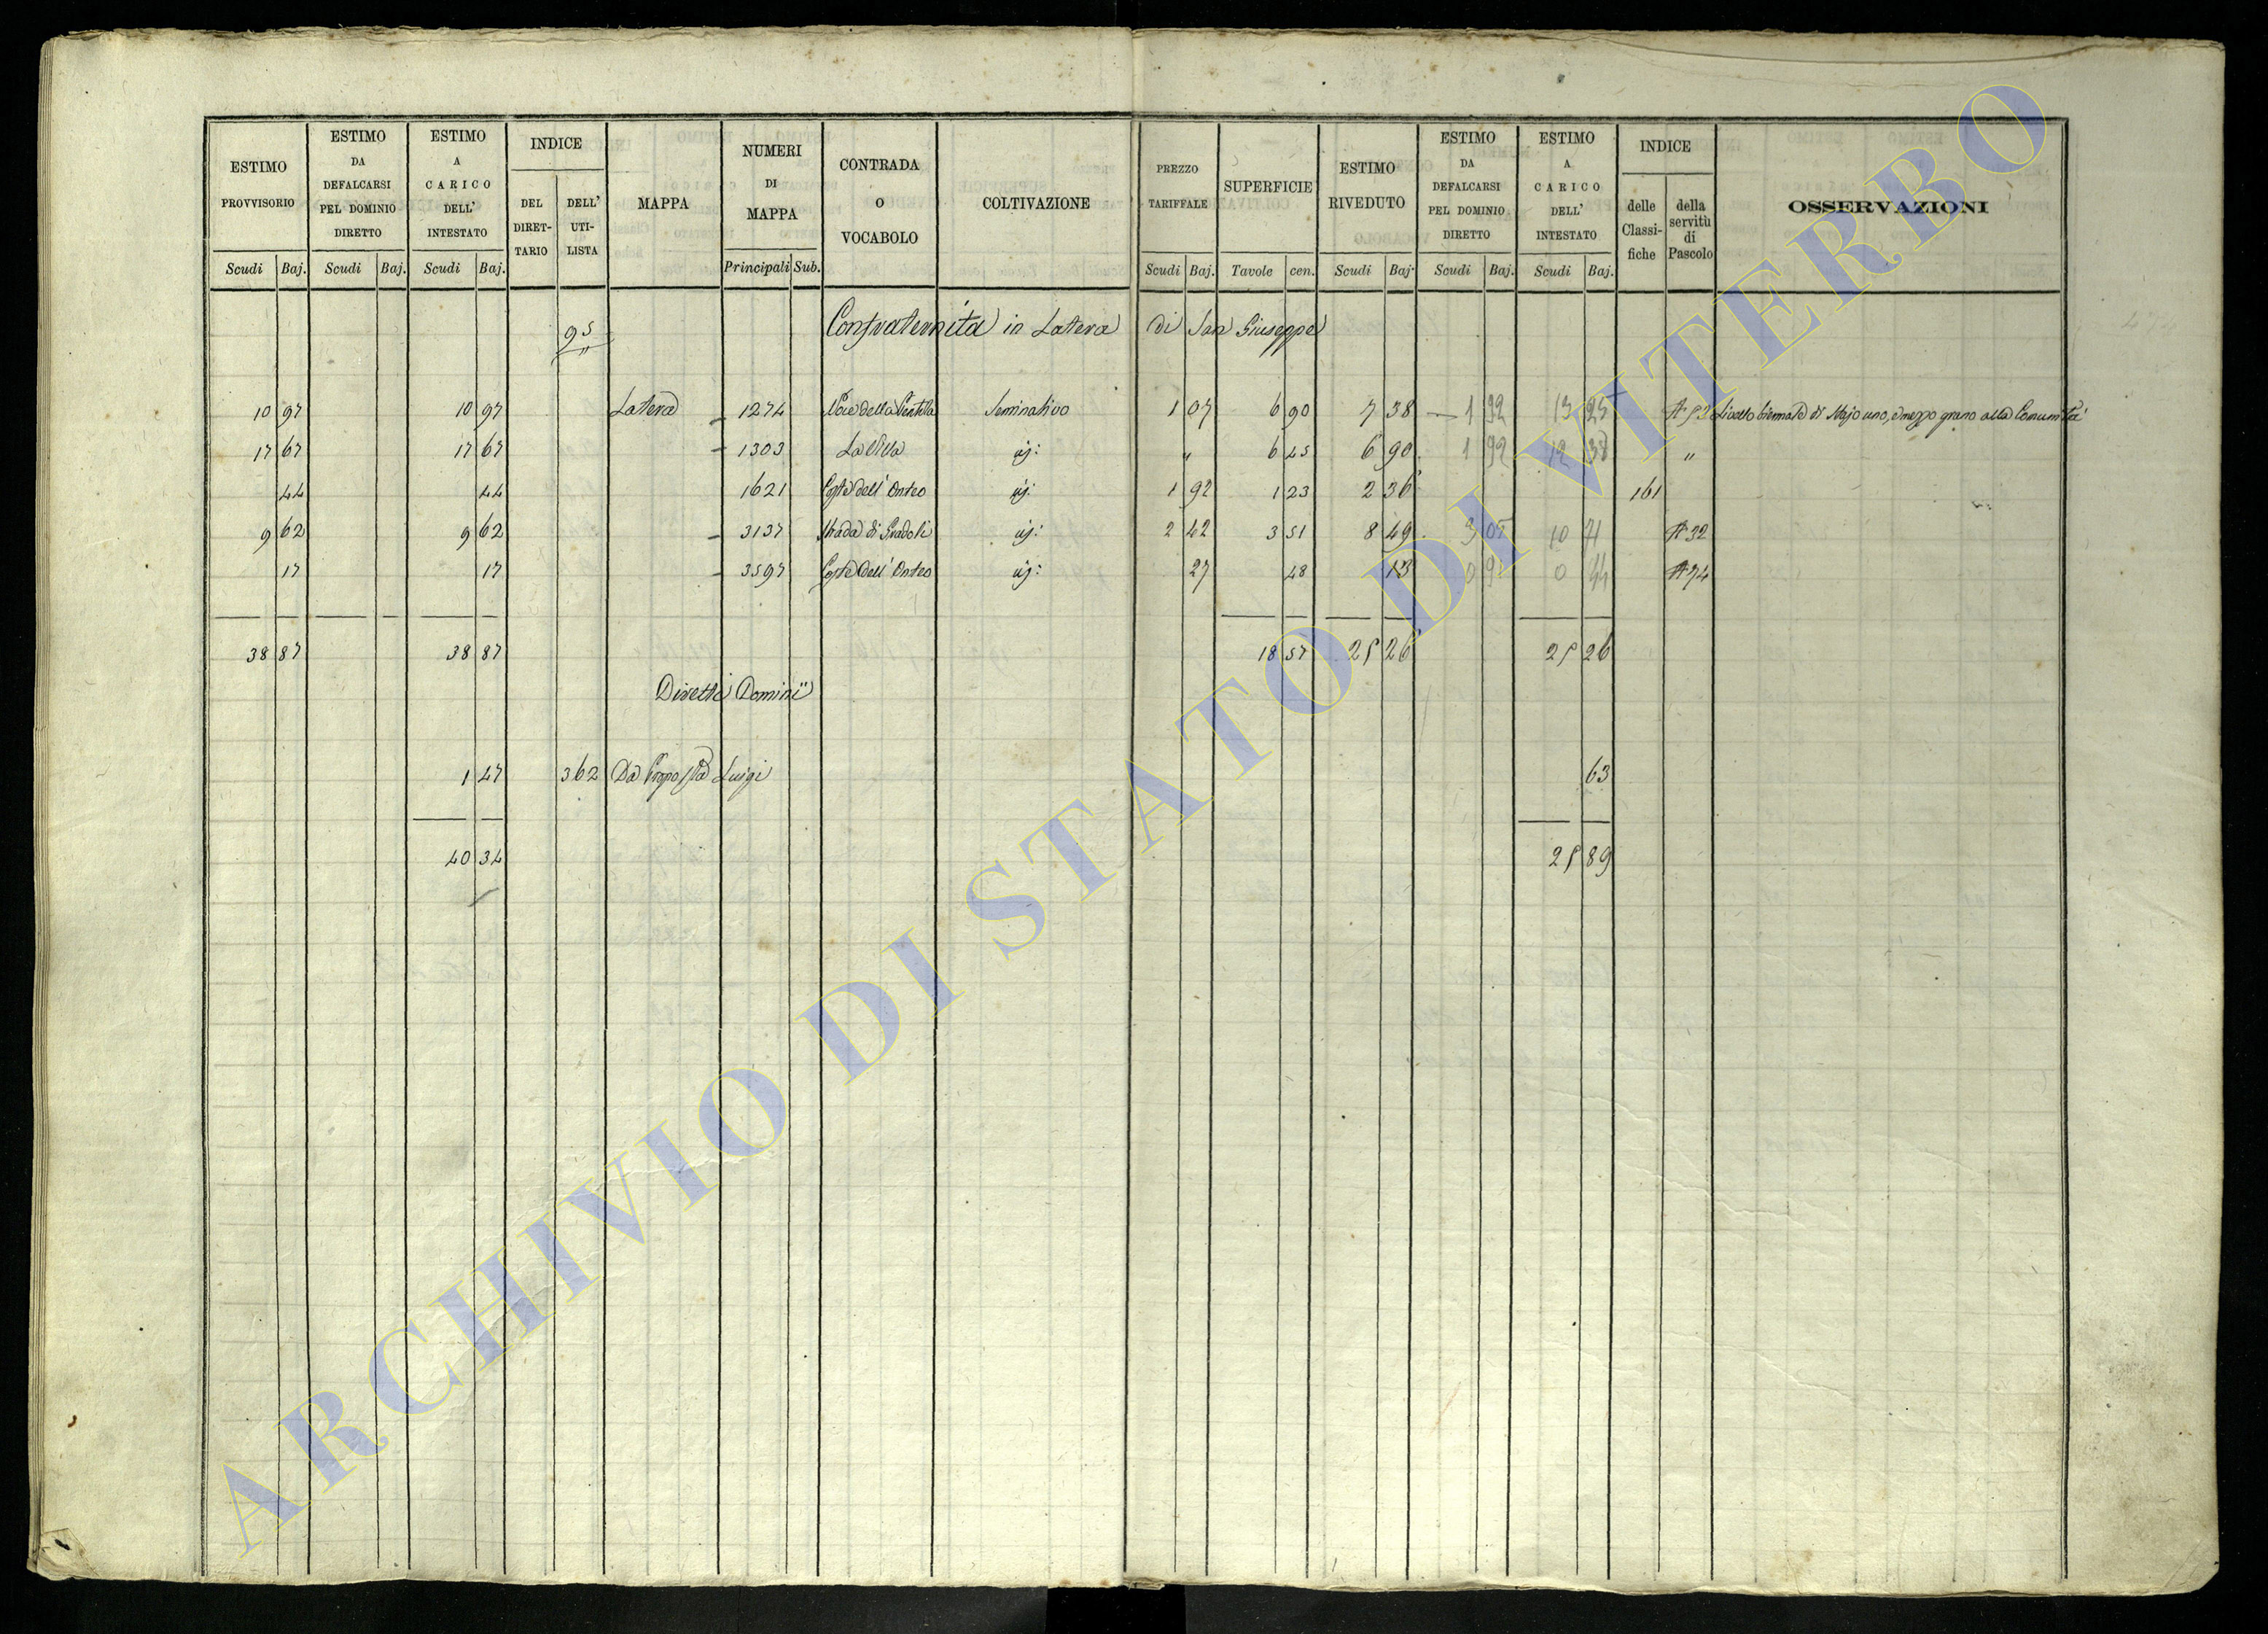 ESTIMO PROVVISORIO
ESTIMO DA DEFALCARSI PEL DOMINIO DIRETTO
ESTIMO A CARICO DELL' INTESTATO
INDICE
DEL DIRET-TARIO
DELL' UTI-LISTA
MAPPA
NUMERI DI MAPPA
CONTRADA O VOCABOLO
COLTIVAZIONE
PREZZO TARIFFALE
SUPERFICIE
ESTIMO RIVEDUTO
ESTIMO DA DEFALCARSI PEL DOMINIO DIRETTO
ESTIMO A CARICO DELL' INTESTATO
INDICE
delle Classi-fiche
della servitù di Pascolo
OSSERVAZIONI
Scudi Baj. Scudi Baj. Scudi Baj. Principali Sub. Scudi Baj. Tavole cen. Scudi Baj. Scudi Baj. Scudi Baj.
95 Confraternita in Latera di San Giuseppe
10 97 10 97 Latera 1274 Seminativo 1 07 6 90 7 38 1 92 13 25 Livello biennale di Mojo uno, e mezzo grano alla Comunità
17 67 17 67 1303 La Villa id: " 6 45 6 90 1 92 12 "
44 44 1621 Coste dell' Onteo id: 1 92 1 23 2 36 161
9 62 9 62 3137 Strada di Gradoli id: 2 42 3 51 8 49 3 05 10 71 A 32
17 17 3597 Coste dell' Onteo id: 27 48 13 0 44 A 74
38 87 38 87 18 57 25 26 25 26
Diretti Dominii
1 47 362 Da Proposta Luigi 63
40 34 25 89
ARCHIVIO DI STATO DI VITERBO